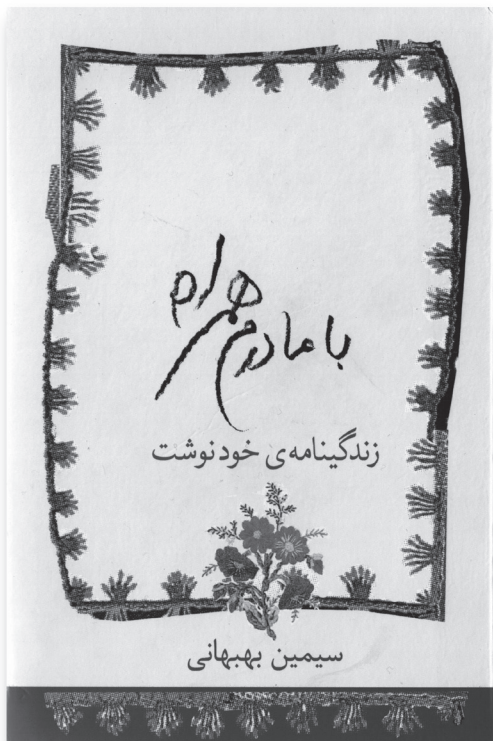 با مادرم همراه
زندگینامه‌ی خودنوشت
سیمین بهبهانی